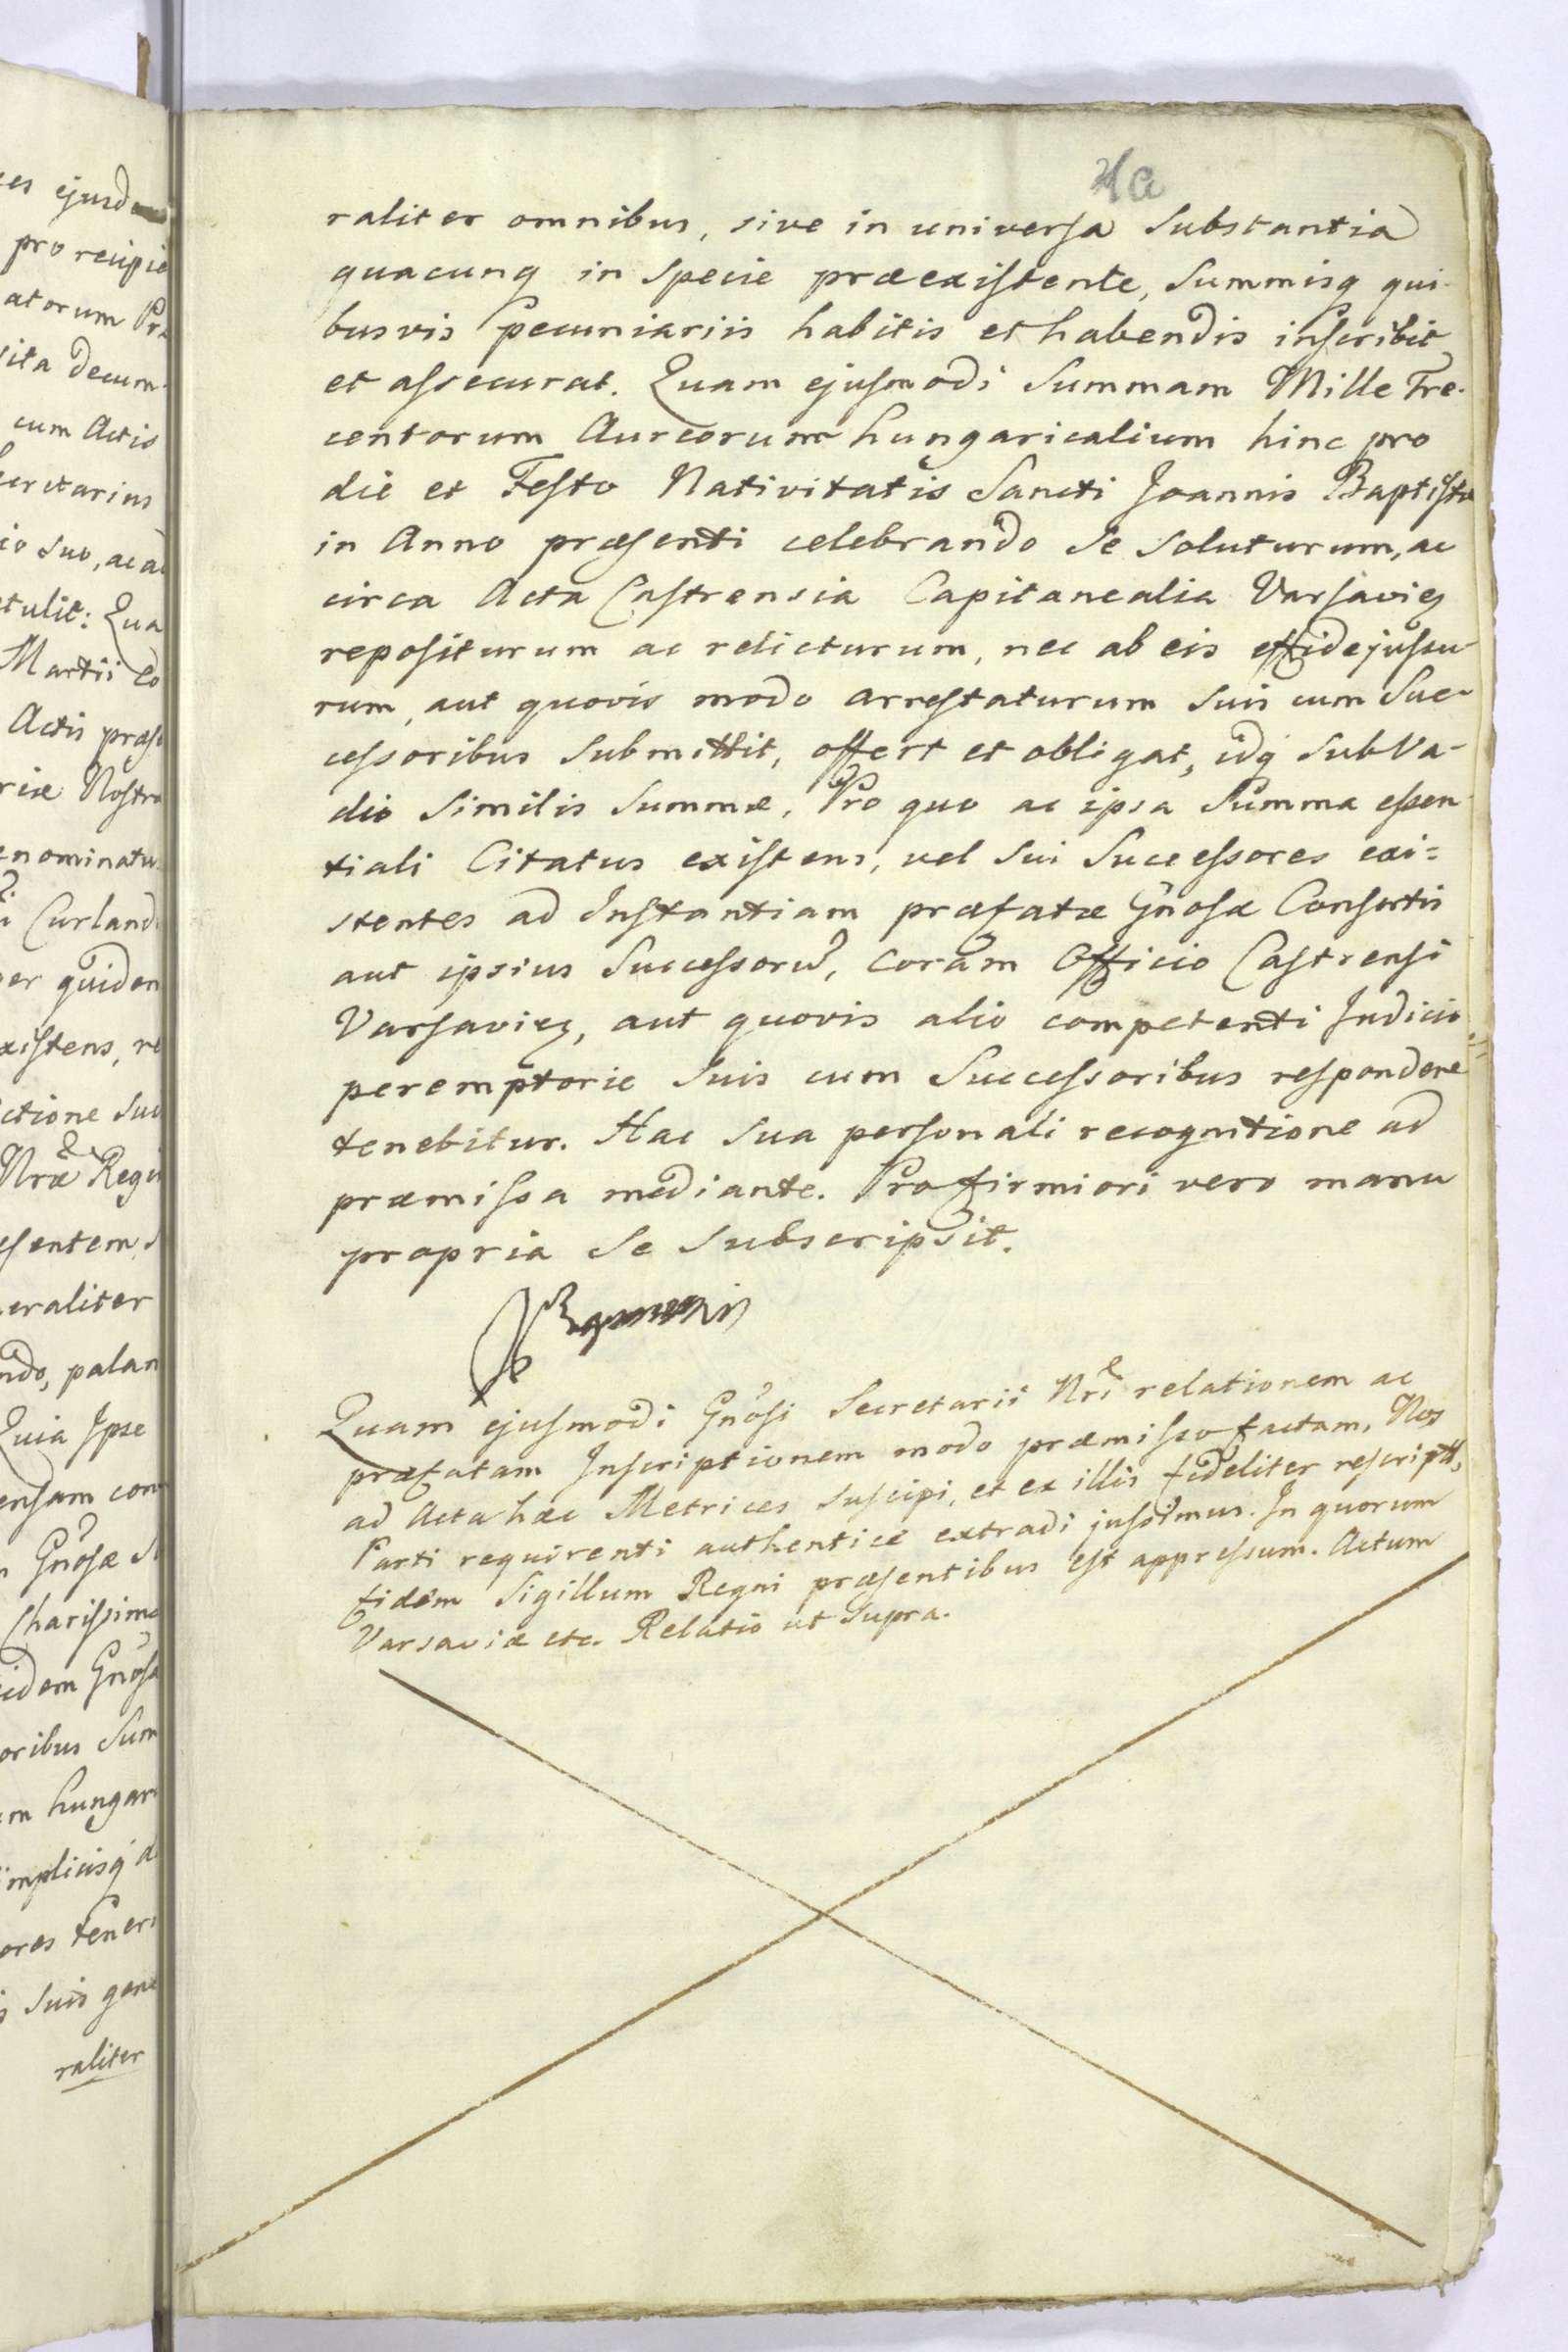 es ejusd
pro recipie
atorum Pr
sita decum
cum Actis
cretarius
io suo, ac a
tulit: Qua
Martii
Actis præs
riæ Nostra
enominatu
i Curland
er quidem
xistens, re
ctione suu
Nræ Regii
esentem
eraliter
ndo, palam
Quia Ipse
ensam con
Gnosæ
Charissim
idem Gnosa
oribus Sum
m hungar
implicisq
ores tener
suis gene
raliter
4a
raliter omnibus, sive in universa Substantia
quacunq in Specie præexistente, Summisq qui-
busvis Pecuniariis habitis et habendis inscribit
et assecurat. Quam ejusmodi Summam Mille Tre-
centorum Aureorum hungaricalium hinc pro
die et Festo Nativitatis Sancti Joannis Baptistæ
in Anno præsenti celebrando se soluturum, ac
circa Acta Castrensia Capitanealia Varsavien
repositurum ac relicturum, nec ab eis effidejussu-
rum, aut quovis modo arrestaturum suis cum Suc-
cessoribus Submittit, offert et obligat, idq Sub Va-
dio similis Summæ. Pro quo ac ipsa Summa essen-
tiali Citatus existens, vel sui Successores exi=
stentes ad Instantiam præfatæ Gnosæ Consortis
aut ipsius Successorũ, coram Officio Castrensi
Varsavien, aut quovis alio competenti Judicio
peremptorie Suis cum Successoribus respondere
tenebitur. Hac sua personali recognitione ad
præmissa mediante. Pro firmiori vero manu
propria se subscripsit.
Quam ejusmodi Gnosi Secretarii Nri relationem ac
præfatam Inscriptionem modo præmisso factam, Nos
ad Acta hæc Metrices suscipi, et ex illis fideliter rescriptt,
Parti requirenti authentice extradi jussimus. In quorum
fidem Sigillum Regni præsentibus est appressum. Actum
Varsaviæ etc. Relatio ut supra.